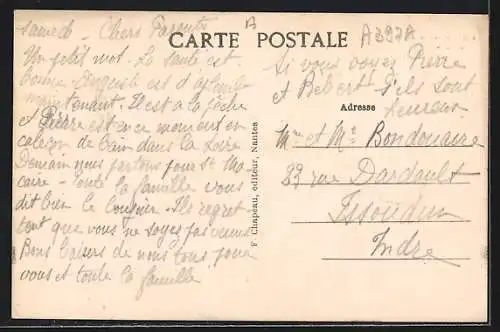 Samedi - Chers Parents
B
A397A
CARTE POSTALE
Un petit mot. La santé est
bonne est d'aplomb
maintenant. Il est à la pêche
et Pierre est en ce moment en
caleçon de bain dans la Loire
Demain nous partons pour St Ma
caire - toute la famille vous
dit bien le bonjour. Ils regret
tent que vous ne soyez pas venus
Bons baisers de nous tous pour
vous et toute la famille
F. Chapeau, éditeur, Nantes
Si vous voyez Pierre
et Bebert s'ils sont
heureux
Adresse
Mr et Me Bondonaire
33 rue Dardault
Issoudun
Indre